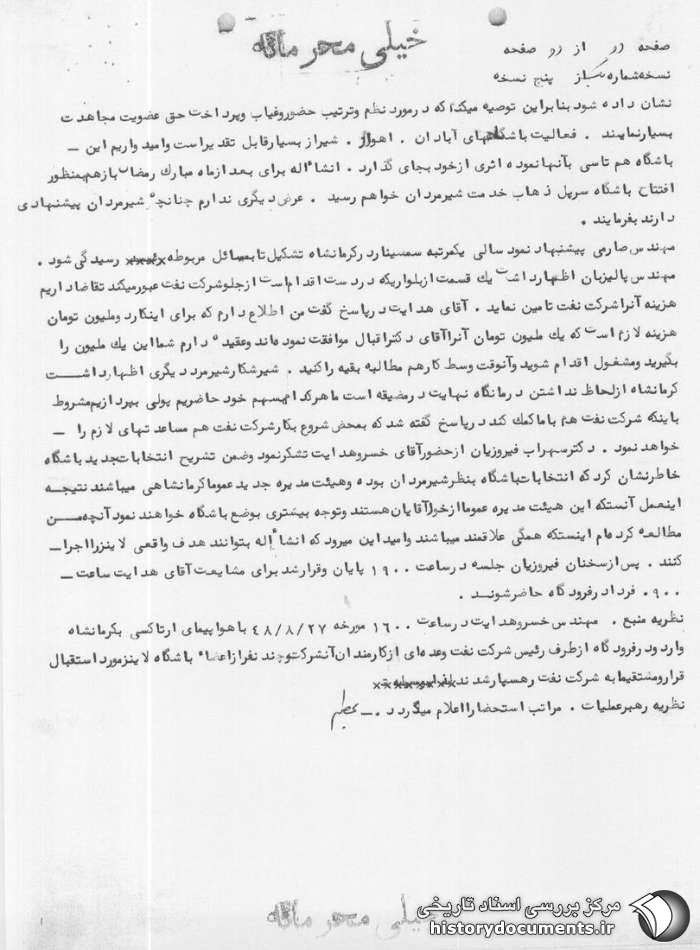 خیلی محرمانه
صفحه دو از دو صفحه
نسخه‌شماره یک از پنج نسخه
نشان داده شود بنابراین توصیه میکند که درمورد نظم وترتیب حضوروغیاب وپرداخت حق عضویت مجاهدت
بسیارنمایند . فعالیت باشگاههای آبادان . اهواز . شیراز بسیارقابل تقدیراست وامیدواریم این –
باشگاه هم تاسی بآنهانموده اثری ازخود بجای گذارد . انشاءاله برای بعدازماه مبارك رمضان بازهم بمنظور
افتتاح باشگاه سرپل ذهاب خدمت شیرمردان خواهم رسید . عرض دیگری ندارم چنانچه شیرمردان پیشنهادی
دارند بفرمایند .
مهندس صارمی پیشنهاد نمود سالی یکمرتبه سمیناردرکرمانشاه تشکیل تابمسائل مربوطه رسیدگی شود .
مهندس پالیزبان اظهارداشت یك قسمت ازبلواریکه دردست اقدام است ازجلوشرکت نفت عبورمیکند تقاضاداریم
هزینه آنراشرکت نفت تامین نماید . آقای هدایت درپاسخ گفت من اطلاع دارم که برای اینکاردوملیون تومان
هزینه لازم است که یك ملیون تومان آنراآقای دکتراقبال موافقت نموده‌اند وعقیده دارم شمااین یك ملیون را
بگیرید ومشغول اقدام شوید وآنوقت وسط کارهم مطالبه بقیه راکنید . شیرشکارشیرمرد دیگری اظهارداشت
کرمانشاه ازلحاظ نداشتن درمانگاه نهایت درمضیقه است ماهرکدام بسهم خود حاضریم پولی بپردازیم‌مشروط
باینکه شرکت نفت هم باماکمك کند درپاسخ گفته شد که بمحض شروع بکارشرکت نفت هم مساعدتهای لازم را –
خواهد نمود . دکترسهراب فیروزیان ازحضورآقای خسروهدایت تشکرنمود وضمن تشریح انتخابات جدید باشگاه
خاطرنشان کرد که انتخابات باشگاه بنظرشیرمردان بوده وهیئت مدیره جدید عموماکرمانشاهی میباشند نتیجه
اینعمل آنستکه این هیئت مدیره عموماازخودآقایان هستند وتوجه بیشتری بوضع باشگاه خواهند نمود آنچه من
مطالعه کرده‌ام اینستکه همگی علاقمند میباشند وامید این میرود که انشاءاله بتوانند هدف واقعی لاینزرااجرا –
کنند . پس ازسخنان فیروزیان جلسه درساعت ۱۹۰۰ پایان وقرارشد برای مشایعت آقای هدایت ساعت –
۹۰۰ فردا درفرودگاه حاضرشوند .
نظریه منبع . مهندس خسروهدایت درساعت ۱۶۰۰ مورخه ۴۸/۸/۲۷ باهواپیمای ارتاکسی بکرمانشاه
واردودرفرودگاه ازطرف رئیس شرکت نفت وعده‌ای ازکارمندان آنشرکت‌وچند نفرازاعضاء باشگاه لاینزمورداستقبال
قراروومستقیمابه شرکت نفت رهسپارشدند
نظریه رهبرعملیات . مراتب استحضارااعلام میگردد . –
خیلی محرمانه
مرکز بررسی اسناد تاریخی
historydocuments.ir